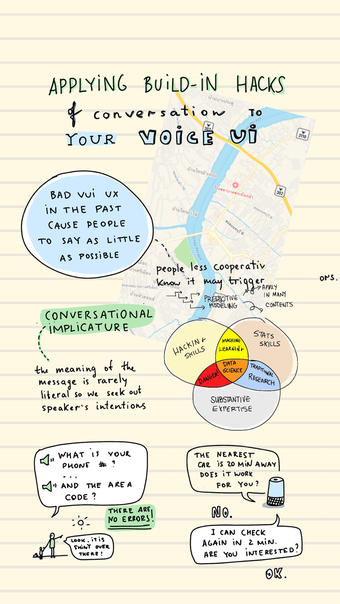 APPLYING BUILD-IN HACKS
of conversation TO
YOUR VOICE UI
BAD VUI UX
IN THE PAST
CAUSE PEOPLE
TO SAY AS LITTLE
AS POSSIBLE
people less cooperativ
know it may trigger
OMS.
PREDICTIVE
MODELING
APPLY
IN MANY
CONTENTS
CONVERSATIONAL
IMPLICATURE
the meaning of the
message is rarely
literal so we seek out
speaker's intentions
HACKING
SKILLS
MACHINE
LEARNING
STATS
SKILLS
DANGER
DATA
SCIENCE
TRADITIONAL
RESEARCH
SUBSTANTIVE
EXPERTISE
WHAT IS YOUR
PHONE # ?
...
AND THE AREA
CODE ?
THERE ARE
NO ERRORS!
LOOK, IT IS
RIGHT OVER
THERE!
THE NEAREST
CAR IS 20 MIN AWAY
DOES IT WORK
FOR YOU?
NO.
I CAN CHECK
AGAIN IN 2 MIN.
ARE YOU INTERESTED?
OK.